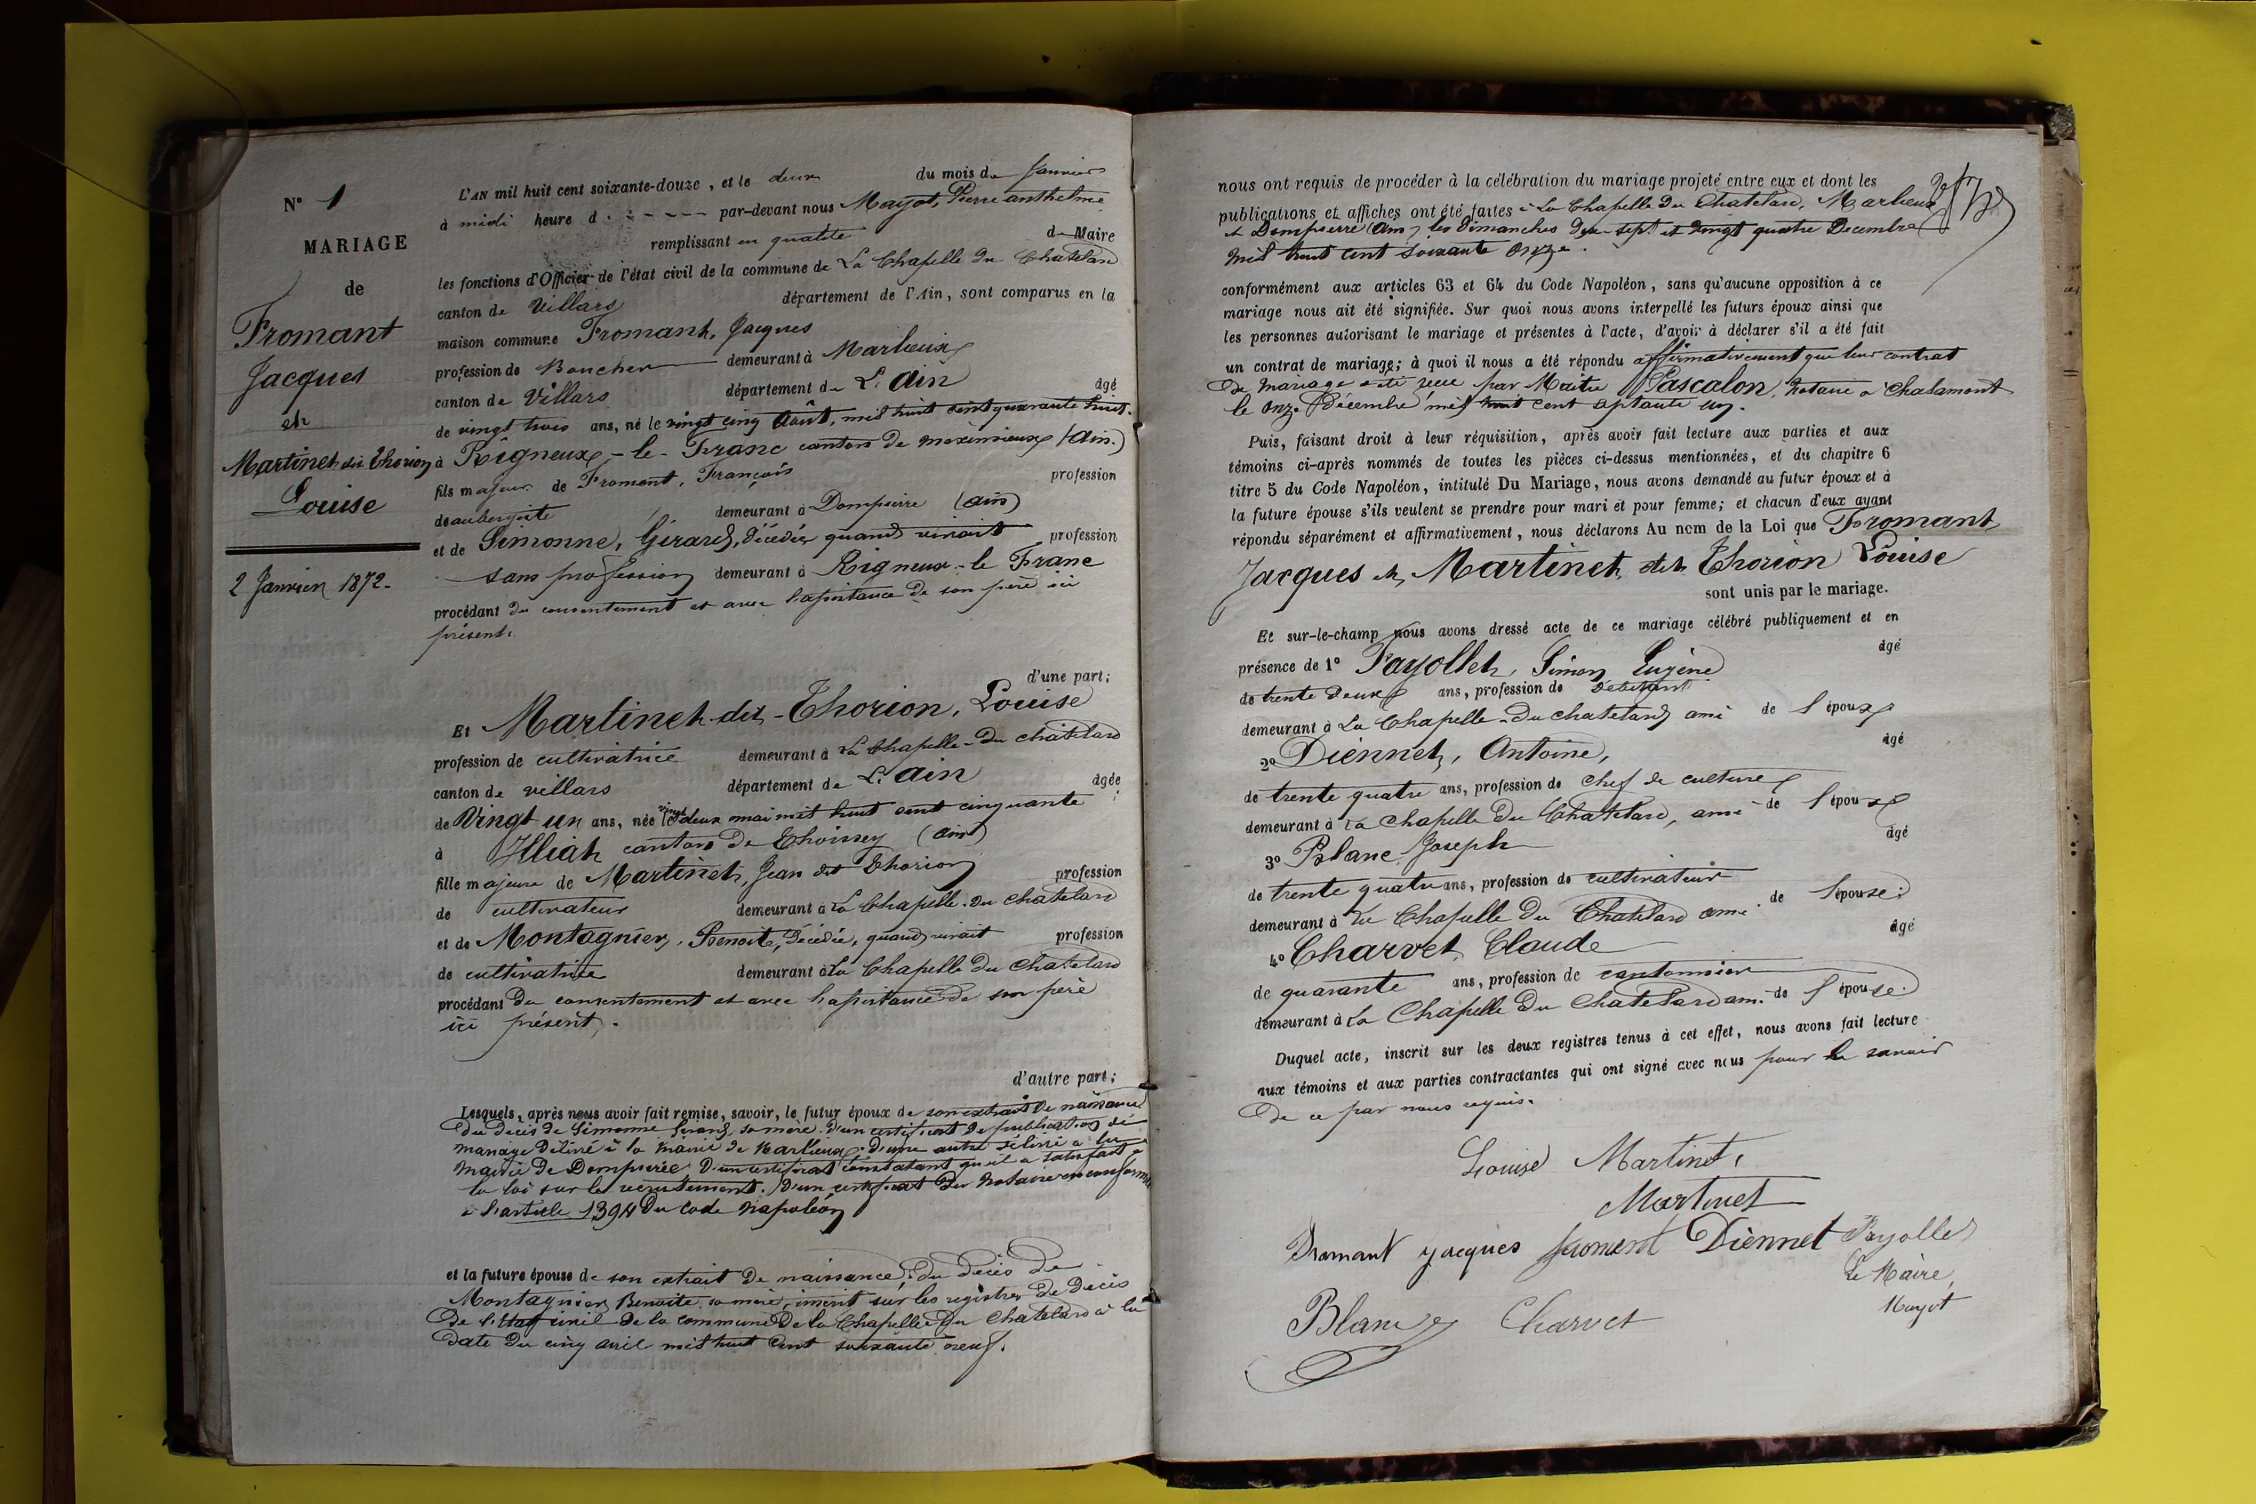 N° 1
MARIAGE
de
Fromant
Jacques
et
Martinet dit Thorion
Louise
2 Janvier 1872.
L'AN mil huit cent soixante-douze, et le deux du mois de Janvier
à midi heure d par-devant nous Mayot, Pierre anthelme
remplissant en qualité de Maire
les fonctions d'Officier de l'état civil de la commune de La Chapelle du Chatelard
canton de Villars département de l'Ain, sont comparus en la
maison commune Fromant, Jacques
profession de Boucher demeurant à Marlieux
canton de Villars département de L'ain âgé
de vingt trois ans, né le vingt cinq Août, mil huit cent quarante huit
à Rigneux-le-Franc canton de meximieux (Ain.)
fils majeur de Fromant, François profession
de aubergiste demeurant à Dompierre (ain)
et de Simonne, Gérard, décédée quand vivait profession
sans profession demeurant à Rigneux-le Franc
procédant du consentement et avec l'assistance de son père ici
présent.
d'une part;
Et Martinet dit-Thorion, Louise
profession de cultivatrice demeurant à La Chapelle-du chatelard
canton de villars département de L'ain âgée
de Vingt un ans, née le vingt deux mai mil huit cent cinquante
à Illiat canton de Thoissey (ain)
fille majeure de Martinet, Jean dit Thorion profession
de cultivateur demeurant à La Chapelle du chatelard
et de Montagnier, Benoite, décédée, quand vivait profession
de cultivatrice demeurant à La Chapelle du Chatelard
procédant du consentement et avec l'assistance de son père
ici présent.
d'autre part;
Lesquels, après nous avoir fait remise, savoir, le futur époux de son extrait de naissance
du décès de Simonne Girard, sa mère. d'un certificat de publication de
mariage délivré à la mairie de Marlieux. d'une autre délivré à la
Mairie de Dompierre. d'un certificat constatant qu'il a satisfait à
la loi sur le recrutement. d'un certificat du Notaire en conformité
à l'article 1394 du code Napoléon
et la future épouse de son extrait de naissance, du décès de
Montagnier Benoite sa mère, inscrit sur les registres de Décès
de l'état civil de la commune de la Chapelle du Chatelard à la
date du cinq avril mil huit cent soixante neuf.
nous ont requis de procéder à la célébration du mariage projeté entre eux et dont les
publications et affiches ont été faites à La Chapelle du Chatelard, Marlieux
et Dompierre (Ain) les dimanches dix-sept et vingt quatre Décembre
mil huit cent soixante onze.
conformément aux articles 63 et 64 du Code Napoléon, sans qu'aucune opposition à ce
mariage nous ait été signifiée. Sur quoi nous avons interpellé les futurs époux ainsi que
les personnes autorisant le mariage et présentes à l'acte, d'avoir à déclarer s'il a été fait
un contrat de mariage; à quoi il nous a été répondu affirmativement que leur contrat
de mariage a été reçu par Maître Pascalon, Notaire à Chalamont
le onze Décembre mil huit cent septante un.
Puis, faisant droit à leur réquisition, après avoir fait lecture aux parties et aux
témoins ci-après nommés de toutes les pièces ci-dessus mentionnées, et du chapitre 6
titre 5 du Code Napoléon, intitulé Du Mariage, nous avons demandé au futur époux et à
la future épouse s'ils veulent se prendre pour mari et pour femme; et chacun d'eux ayant
répondu séparément et affirmativement, nous déclarons Au nom de la Loi que Fromant
Jacques et Martinet dit Thorion Louise
sont unis par le mariage.
Et sur-le-champ nous avons dressé acte de ce mariage célébré publiquement et en
présence de 1° Payollet, Simon Eugène âgé
de trente deux ans, profession de Débitant
demeurant à La Chapelle-du chatelard ami de l'époux
2° Diennet, Antoine, âgé
de trente quatre ans, profession de chef de culture
demeurant à La chapelle du Chatelard, ami de l'époux
3° Blanc Joseph âgé
de trente quatre ans, profession de cultivateur
demeurant à La Chapelle du Chatelard ami de l'épouse
4° Charvet Claude âgé
de quarante ans, profession de cantonnier
demeurant à La Chapelle du Chatelard ami de l'épouse
Duquel acte, inscrit sur les deux registres tenus à cet effet, nous avons fait lecture
aux témoins et aux parties contractantes qui ont signé avec nous pour le savoir
de ce par nous requis.
Louise Martinet,
Martinet
Fromant Jacques Fromant Diennet Payollet
Le Maire,
Mayot
Blanc Charvet